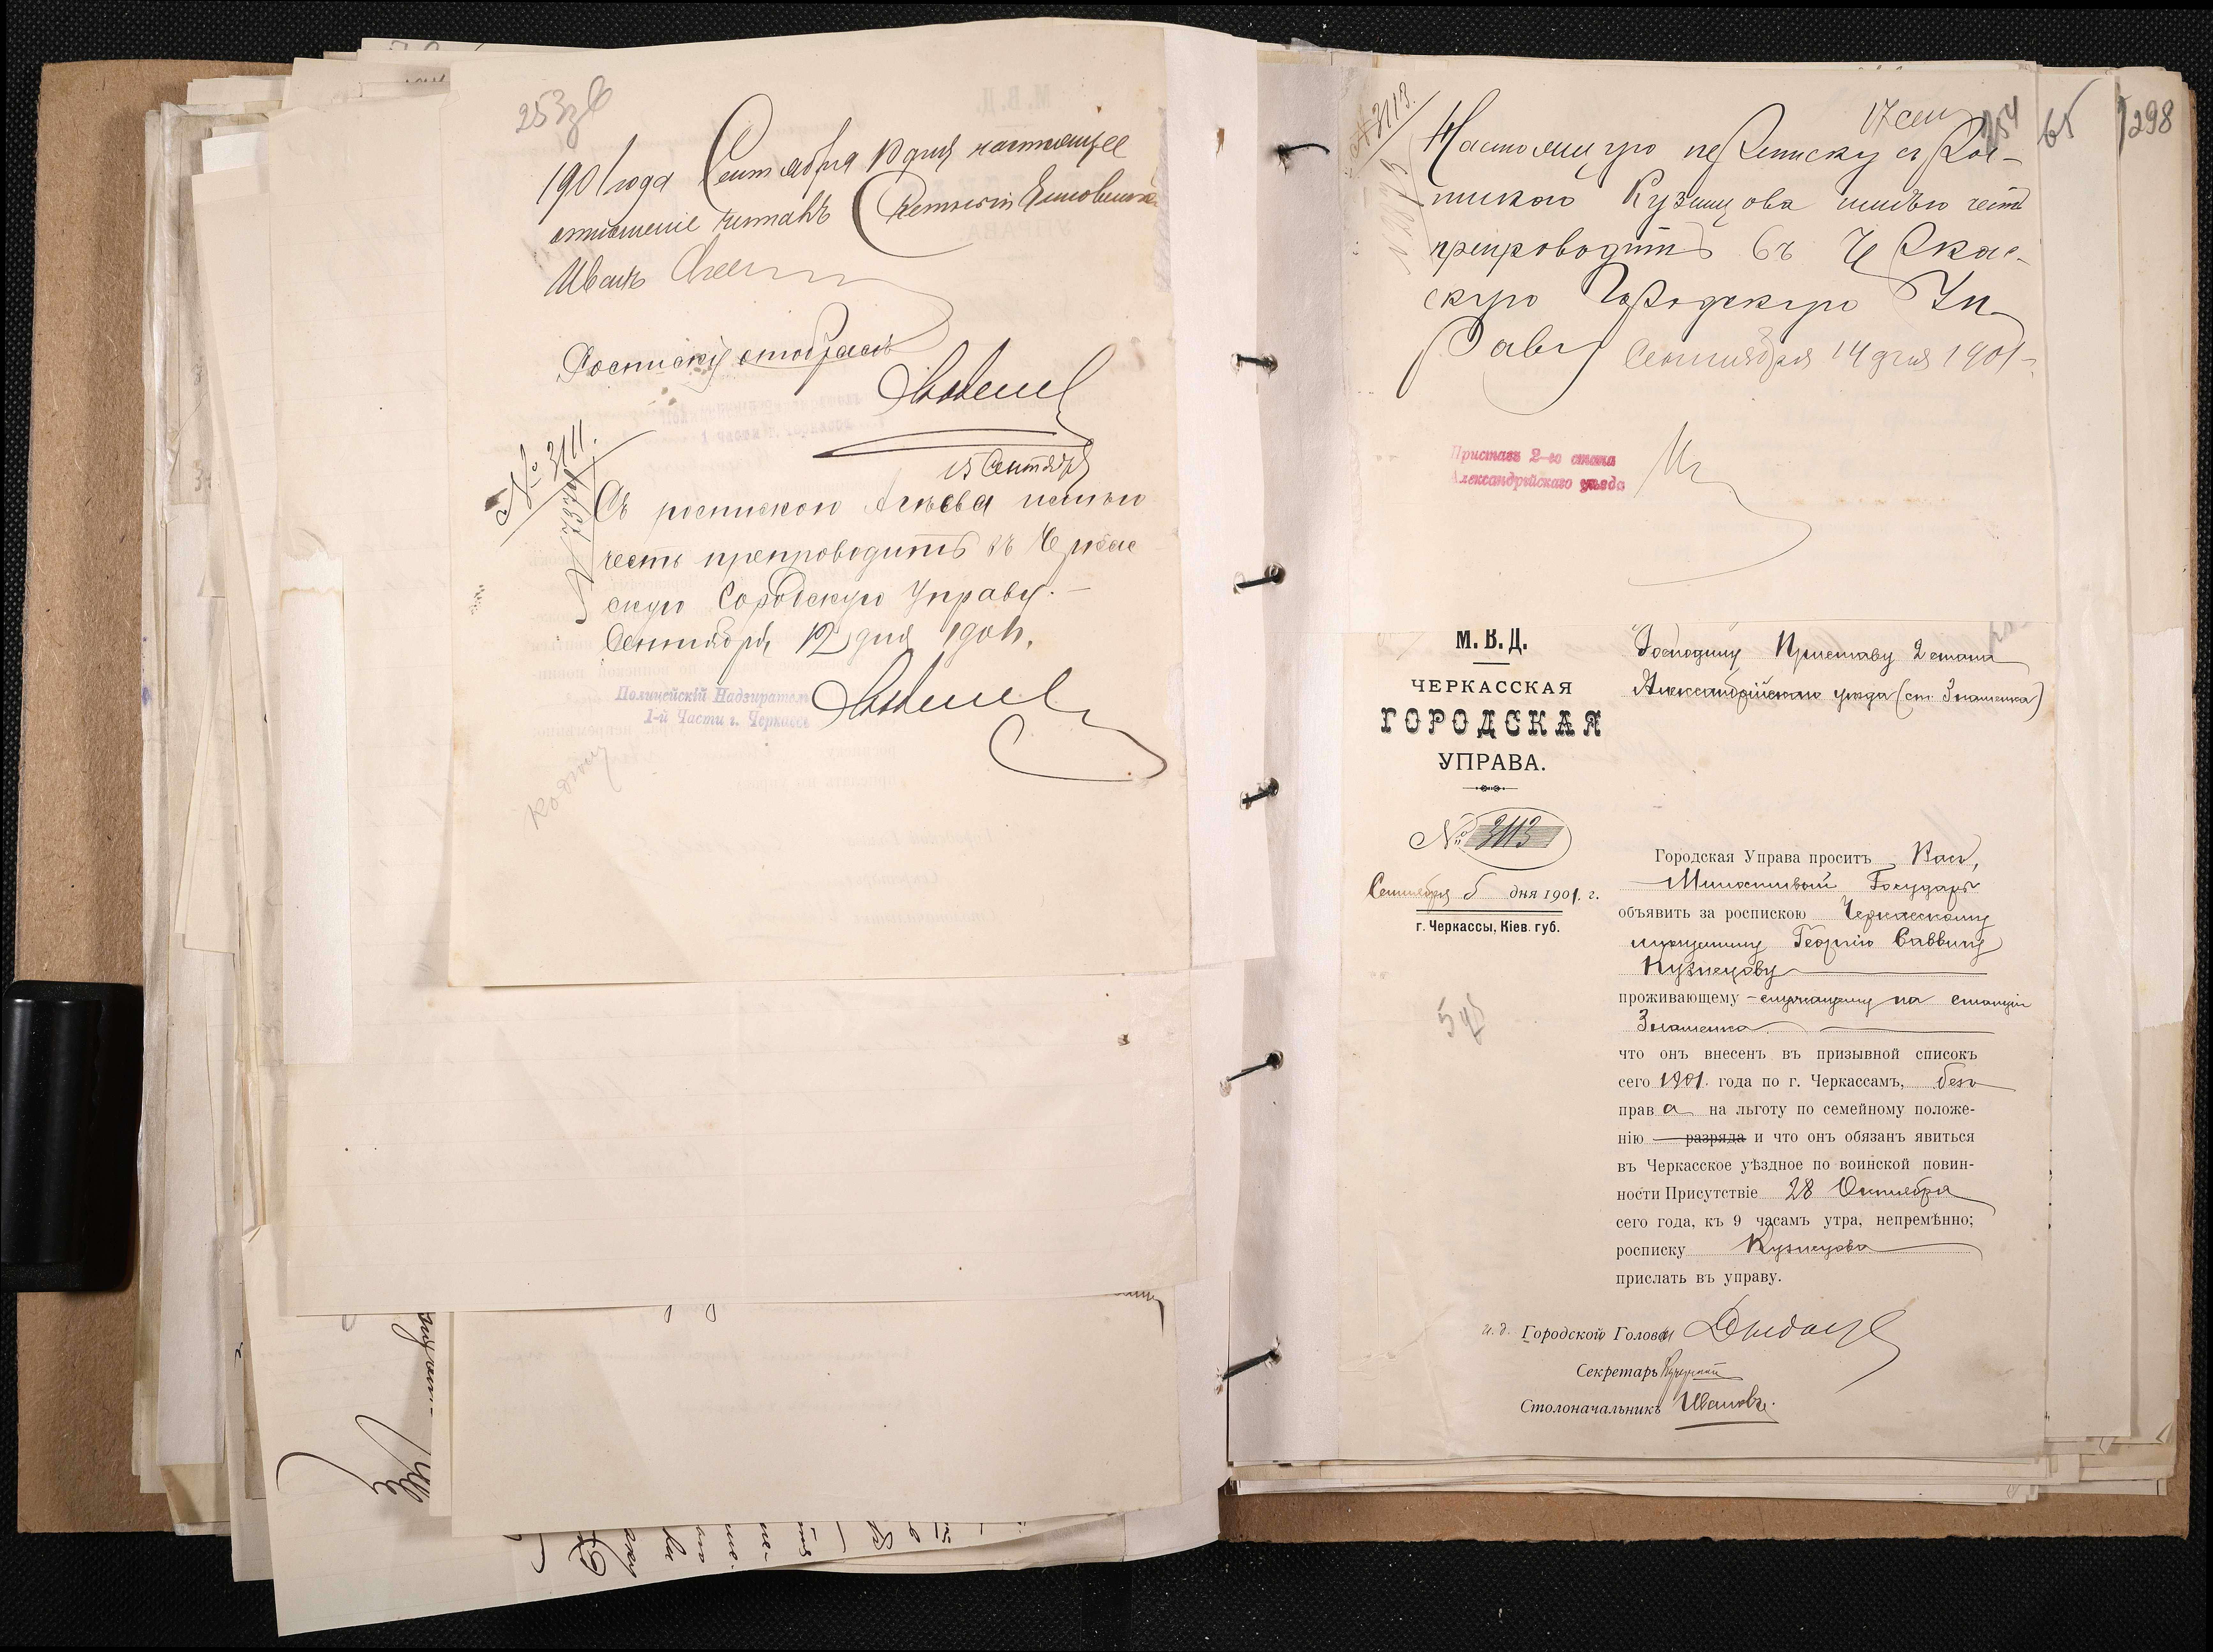 253зв
1901 года Сентября 10 дня настоящее
отношение читалъ
Иванъ
Росписку отобралъ
№ 3111.
15 Сентября
Съ роспискою Агѣева имѣю
честь препроводить въ Черкас
скую Городскую Управу.-
Сентября 12 дня 1901 г.
Полицейскій Надзиратель
1-й Части г. Черкассъ
17 сен
254
65
298
№ 3113.
Настоящую переписку съ Рос-
пискою Кузнецова имѣю честь
препроводить въ Черкас-
скую Городскую Уп-
раву Сентября 14 дня 1901 г.
Приставъ 2-го стана
Александрійскаго уѣзда
М. В. Д.
ЧЕРКАССКАЯ
ГОРОДСКАЯ
УПРАВА.
№ 3113
Сентября 5 дня 1901. г.
г. Черкассы, Кіев. губ.
Господину Приставу 2 стана
Александрійскаго уѣзда (ст. Знаменка)
Городская Управа проситъ Васъ,
Милостивый Государь
объявить за роспискою Черкасскому
мѣщанину Георгію Саввину
Кузнецову
проживающему - служащему на станціи
Знаменка
что онъ внесенъ въ призывной списокъ
сего 1901. года по г. Черкассамъ, безъ
права на льготу по семейному положе-
нію разряда и что онъ обязанъ явиться
въ Черкасское уѣздное по воинской повин-
ности Присутствіе 28 Октября
сего года, къ 9 часамъ утра, непремѣнно;
росписку Кузнецова
прислать въ управу.
и. д. Городской Головы
Секретарь
Столоначальникъ Ивановъ.